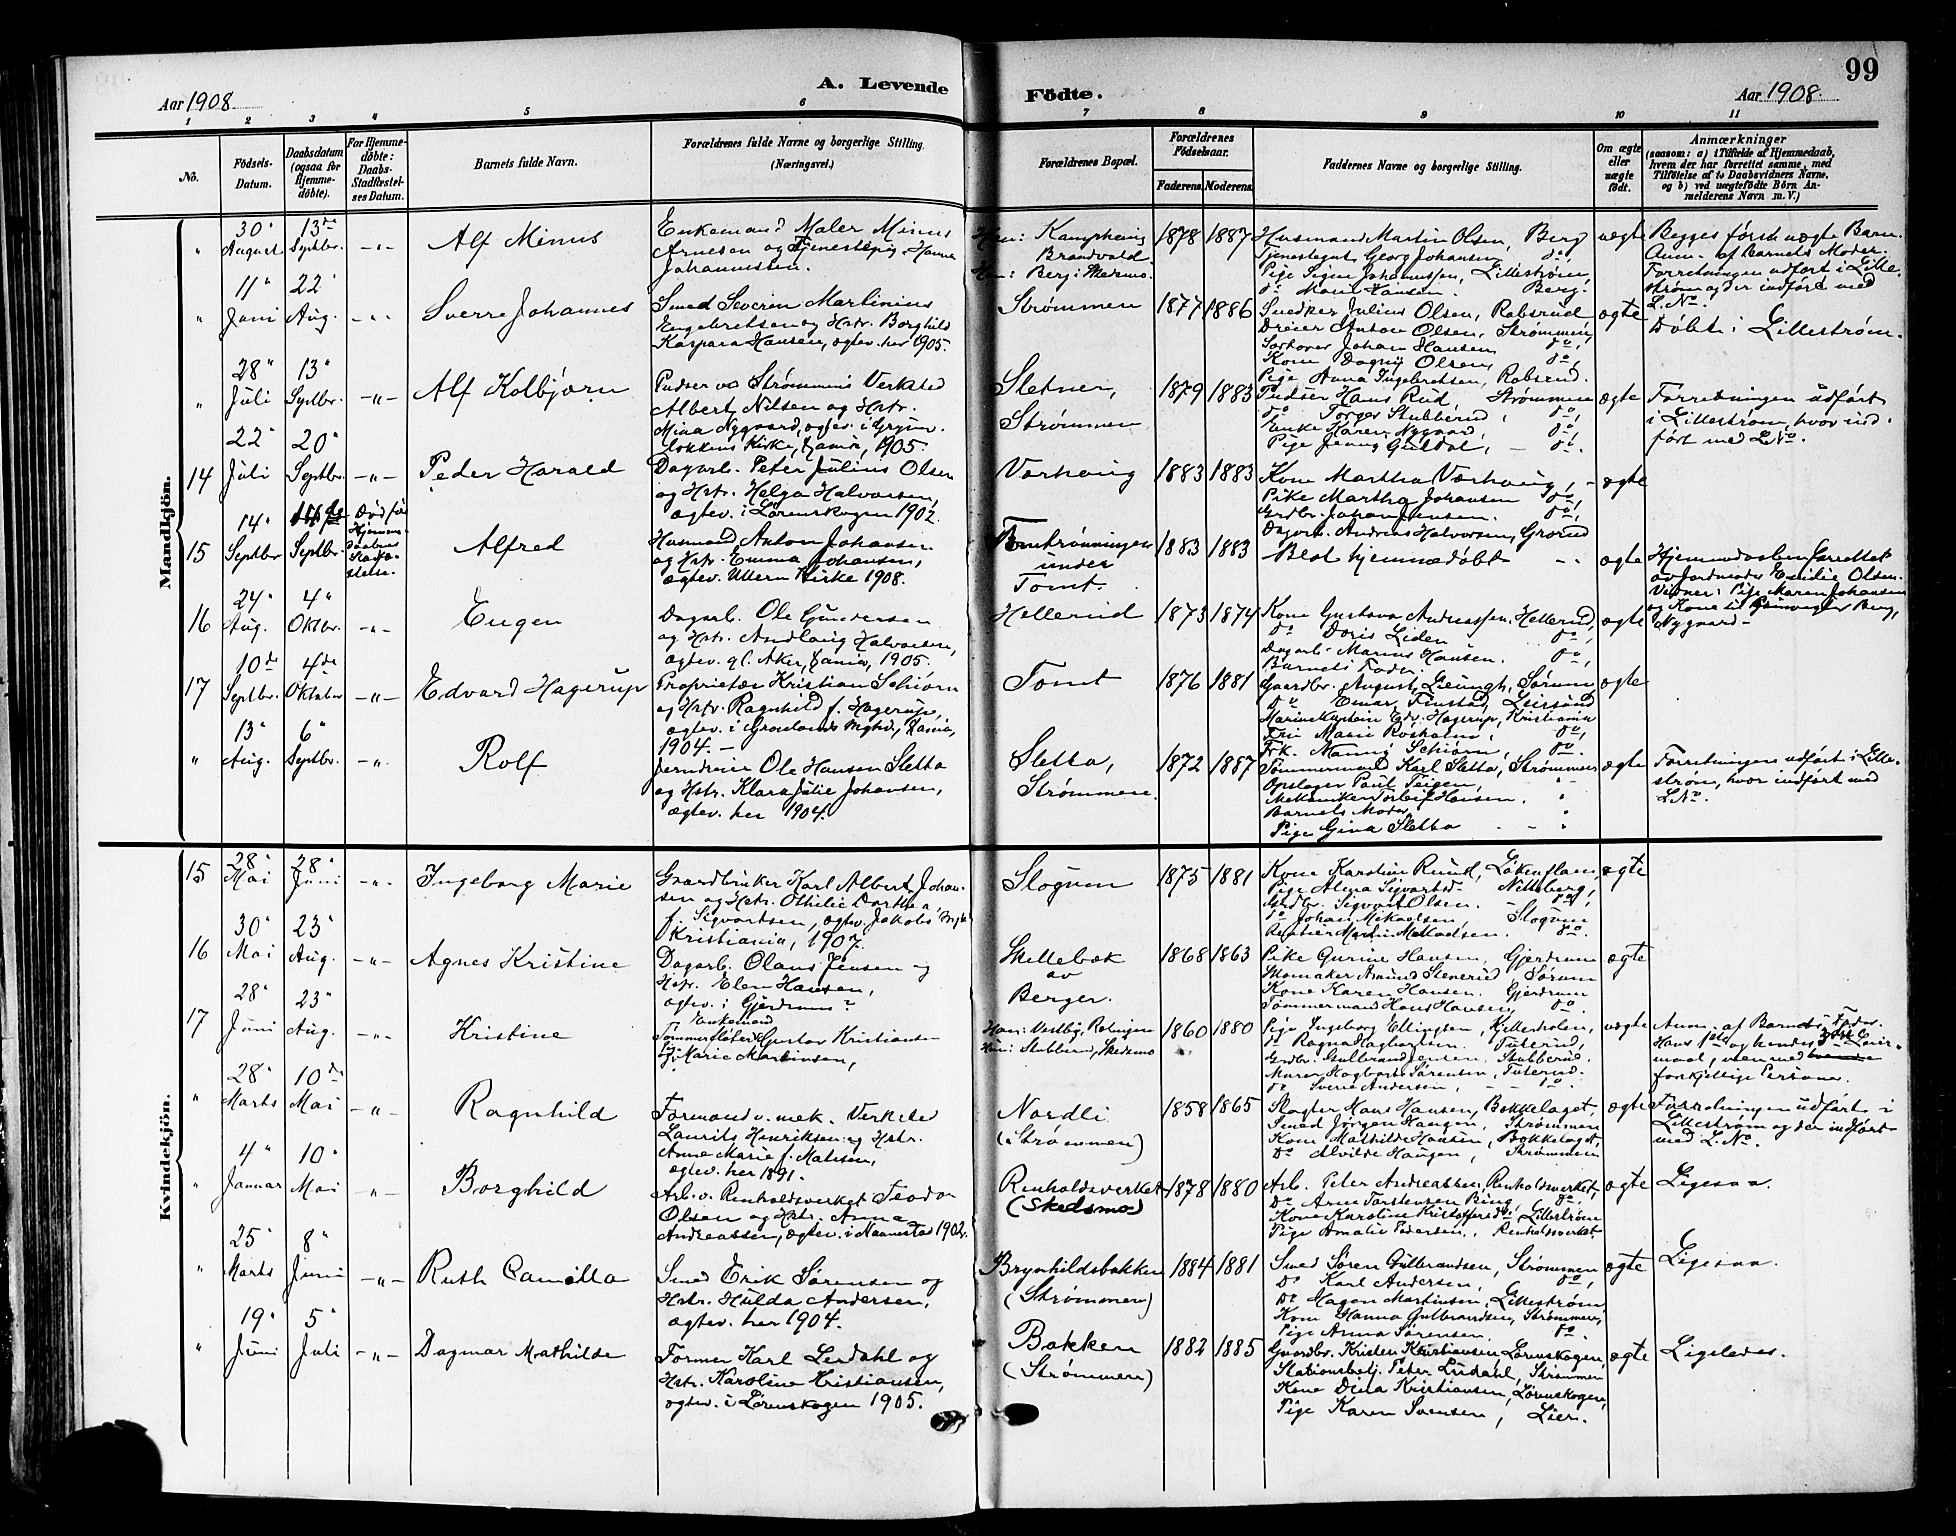 99
Aar 1908.
A. Levende Födte.
Aar 1908.
1 2 3 4 5 6 7 8 9 10 11
No.
Födsels-Datum.
Daabsdatum (ogsaa for Hjemmedöbte).
For Hjemmedöbte: Daabs-Stadfæstelses Datum.
Barnets fulde Navn.
Forældrenes fulde Navne og borgerlige Stilling. (Næringsvei.)
Forældrenes Bopæl.
Forældrenes Födselsaar.
Faderens. Moderens.
Faddernes Navne og borgerlige Stilling.
Om ægte eller uægte födt.
Anmærkninger
(saasom: a) i Tilfælde af Hjemmedaab,
hvem der har forrettet samme, med
Tilföielse af to Daabsvidners Navne,
og b) ved uægtefödte Börn Anmelderens Navn m. V.)
Mandkjön.
" 30" August 13de Septbr. -"- Alf Minus
Enkemand Maler Minus
Arnesen og Tjenestepig. Hanna
Johannessen.
Han: Kampheim
Brandvold.
Hun: Berg i Skedsmo.
1878 1887
Husmand Martin Olsen, Berg
Tjenestegut Georg Johansen do,
Pige Signe Johannessen, Lillestrøm,
do Marie Hansen. Berg.
uægte
Begges første uægte Barn.
Anm. af Barnets Moder.
Forretningen udført i Lille-
strøm og der indført med
L. No.
" 11" Juni 22" Aug. -"- Sverre Johannes
Smed Severin Martinius
Engebretsen og Hstr. Borghild
Kaspara Hansen, ægtev. her 1905.
Strømmen
1877 1886
Snedker Julius Olsen, Robsrud
Dreier Anton Olsen, Strømmen,
Johan Hansen do,
Kone Dagny Olsen, do,
Pige Anna Ingebretsen, Robsrud.
ægte
Døbt i Lillestrøm.
" 28" Juli 13" Septbr. -"- Alf Kolbjørn
Pudser v. Strømmens Verksted
Albert Nilsen og Hstr.
Mina Nygaard, ægtev. i Grøn-
lokkens Kirke, Xania, 1905.
Sletner,
Strømmen
1879 1883
Pudser Hans Rud, Strømmen
do Torger Stubberud, do,
Enke Karen Nygaard, do,
Pige Jenny Guldal, - do.
ægte
Forretningen udført
i Lillestrøm, hvor ind-
ført med L. No.
14 22" Juli 20" Septbr. -"- Peder Harald
Dagarb. Peter Julius Olsen
og Hstr. Helga Halvorsen,
ægtev. i Lørenskogen 1902.
Værhaug
1883 1883
Kone Martha Værhaug, -
Pike Martha Johansen do,
Grdbr. Johan Jensen. do,
Dagarb. Andreas Halvorsen, Grorud
ægte
15 14" Septbr. Septbr. Død før Hjemmedaabens Stadfæ-stelse. Alfred
Husmand Anton Johansen
og Hstr. Emma Johansen,
ægtev. Ullern Kirke 1908.
under
Tomt.
1883 1883
Blot hjemmedøbt -
ægte
Hjemmedaaben forrettet
av Jordmoder Emilie Olsen.
Vidner: Pige Maren Johansen
og Kone til Berg,
Nygaard-
16 24" Aug. 4" Oktbr. -"- Eugen
Dagarb. Ole Gundersen
og Hstr. Andlaug Halvorsen,
ægtev. gl. Aker, Xania, 1905.
Hellerud
1873 1874
Kone Gustava Andreassen. Hellerud,
do Doris Liden do,
Dagarb. Marius Hansen. do,
Barnets Fader.
ægte
17 10de Septbr. 4de Oktober -"- Edvard Hagerup
Proprietær Kristian Schiørn
og Hstr. Ragnhild f. Hagerup,
ægtev. i Grønlands Mghd., Xania,
1904. -
Tomt
1876 1881
Gaardbr. August Lieungh, Sørum
do Einar Finstad, Leirsund
Marinekaptein Edv. Hagerup, Kristiania
Fru Marie do,
Frk. Nanny Schiørn, do.
ægte
" 13" Aug. 6" Septbr. -"- Rolf
Jerndreier Ole Hansen Sletta
og Hstr. Klara Julie Johansen,
ægtev. her 1904.
Sletta,
Strømmen.
1872 1887
Tømmermand Karl Sletta, Strømmen
Opslager Paul Teigen, "
Mekaniker Torleif Hansen. "
Barnets Moder "
Pige Gina Sletta - - "
ægte
Forretningen udført i Lille-
strøm, hvor indført med
L. No.
Kvindekjön.
15 28" Mai 28" Juni -"- Ingeborg Marie
Gaardbruker Karl Albert Johan-
sen og Hstr. Othilie Dorthea
f. Sigvartsen, ægtev. Jakobs Mght
Kristiania, 1907.
Slogum
1875 1881
Kone Karoline Ruud, Løkenflaen
Pige Alma Sigvartsd. Nitteberg,
Grdbr. Sigvart Olsen. - do,
do Johan Mikaelsen, Slogum
Rentier Martin Mikaelsen. do.
ægte
16 30" Mai 23" Aug. -"- Agnes Kristine
Dagarb. Olaus Jensen og
Hstr. Elen Hansen,
ægtev. i Gjerdrum?
Skellebæk
av
Berger.
1868 1863
Pike Gurine Hansen, Gjerdrum
Skomaker Amund Stenerud Sørum
Kone Karen Hansen. Gjerdrum
Tømmermand Hans Hansen, do
ægte
17 28" Juni 23" Aug. -"- Kristine
Enkemand
Tømmerfløter Gustav Kristiansen
Pg. Marie Martinsen,
Han: Vestby, Rælingen
Hun: Stubberud, Skedsmo
1860 1880
Pige Ingeborg Ellingsen, Kjellerholen,
do Ragna Hagbartsen. Tuterud,
Grdbr. Gulbrand Jensen. Stubberud.
Murer Hagbart Sørensen, Tuterud.
do Sverre Andersen, - - do.
uægte
Anm. af Barnets Fader.
Hans 1ste og hendes
maal, men med
forskjellige Personer.
" 28" Marts 10de Mai -"- Ragnhild
Formand v. mek. Verksted
Laurits Henriksen og Hstr.
Anne Marie f. Madsen,
ægtev. her 1891.
Nordli
(i Strømmen)
1858 1865
Slagter Hans Hansen, Bakkelaget,
Smed Jørgen Haugen, Strømmen
Kone Mathilde Hansen, Bakkelaget,
Do Alvilde Haugen, Strømmen
ægte
Forretningen udført i
Lillestrøm og der indført
med L. No
" 4" Januar 10" Mai -"- Borghild
Arb. v. Renholdsverket Teodor
Olsen og Hstr. Anna
Andreassen, ægtev. i Nannestad 1902.
Renholdsverket
(Skedsmo)
1878 1880
Arb. Peter Andreassen, Renholdsverket,
Do Arne Torstensen Bing do.
Kone Karoline Kristoffersd., Lillestrøm
Pige Amalie Pedersen, Renholdsverket
ægte
Ligesaa.
" 25" Marts 8" Juni -"- Ruth Camilla
Smed Erik Sørensen og
Hstr. Hulda Andersen,
ægtev. her 1904.
Brynhildsbakken
(Strømmen)
1884 1881
Smed Søren Gulbrandsen, Strømmen
Do Karl Andersen, do,
Do Hagen Martinsen, Lillestrøm,
Kone Hanna Gulbrandsen, Strømmen,
Pige Anna Sørensen. do.
ægte
Ligesaa.
" 19" Juni 5" Juli -"- Dagmar Mathilde
Former Karl Lerdahl og
Hstr. Karoline Kristiansen,
ægtev. i Lørenskogen 1905.
Bakken
(Strømmen)
1882 1885
Gaardbr. Kristen Kristiansen Lørenskogen,
Stationsbetj. Peter Lerdahl, Strømmen
Kone Dina Kristiansen, Lørenskogen,
Pige Karen Svensen, Lier.
ægte
Ligeledes.